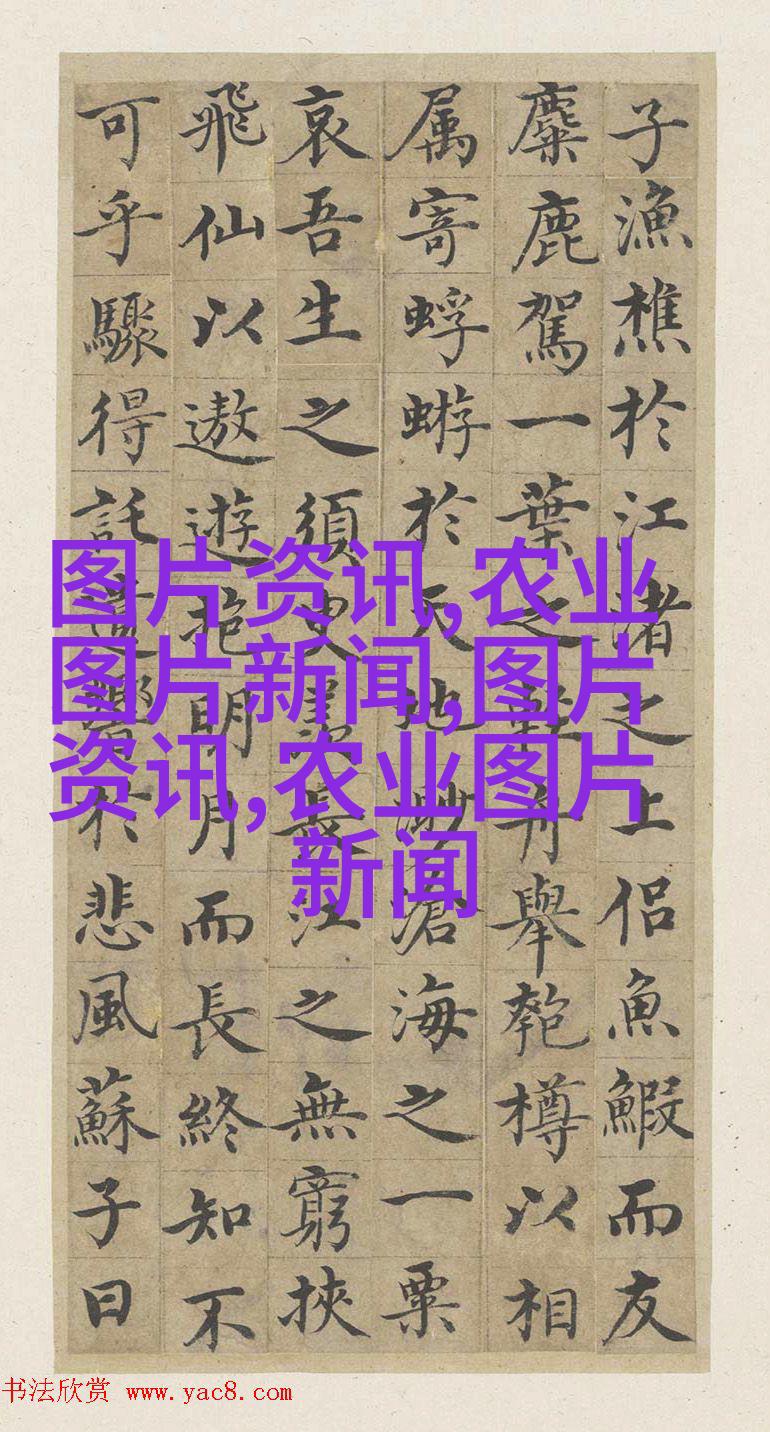 子漁樵於江渚之上侶魚鰕而友
麋鹿駕一葉之舟舉匏樽以相
属寄蜉蝣於天地渺滄海之一粟
哀吾生之須臾羨長江之無窮挾
飛仙以遨遊抱明月而長終知不
可乎驟得託遺響於悲風蘇子曰
图片资讯,农业
图片新闻,图片
资讯,农业图片
新闻
书法欣赏 www.yac8.com